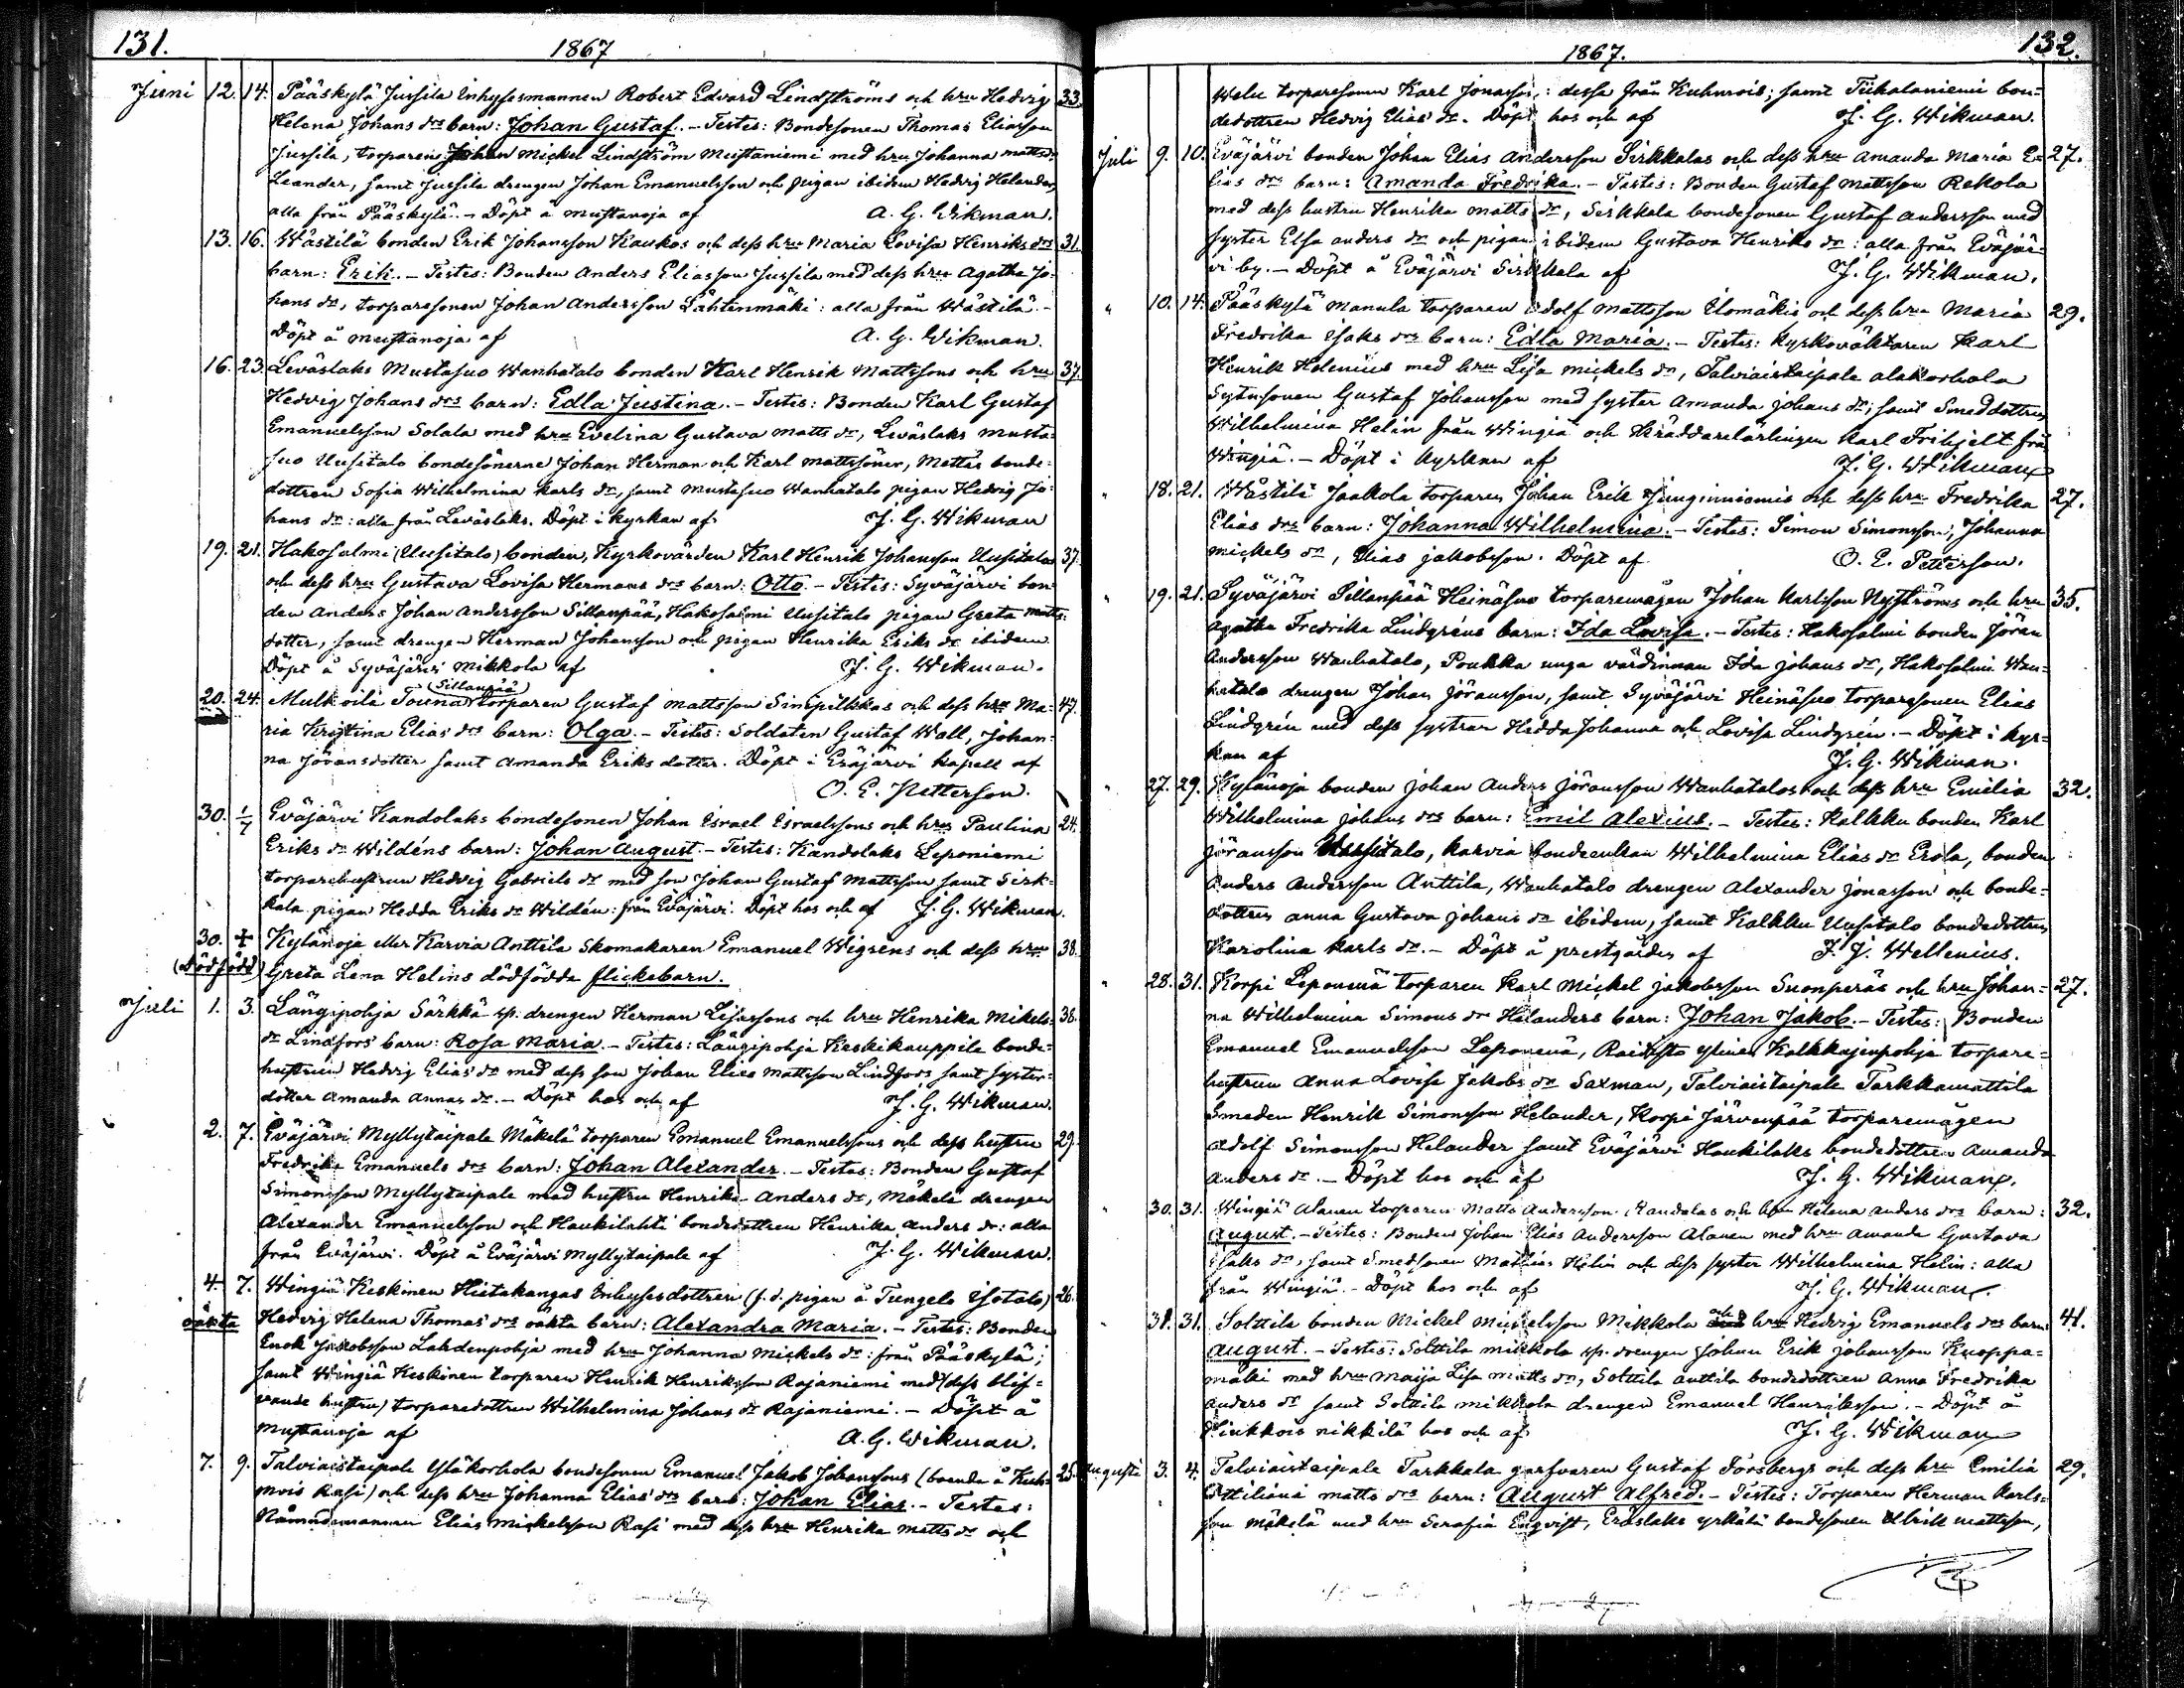 131.
1867
Juni 12. 14. Pääskylä Jussila Inhysesmannen Robert Edvard Lindströms och hru Hedvig 33.
Helena Johans drs barn: Johan Gustaf. - Testes: Bondesonen Thomas Eliasson
Jussila, torparen Johan Mickel Lindström Mustaniemi med hru Johanna Mattsdr
Leander, samt Jussila drengen Johan Emanuelsson och pigan ibidem Hedvig Helander,
alla från Pääskylä. - Döpt å Mustanoja af A. G. Wikman.
13. 16. Wästilä bonden Erik Johansson Kaukos och dess hru Maria Lovisa Henriks drs 31.
barn: Erik. - Testes: Bonden Anders Eliasson Jussila med dess hru Agatha Jo-
hans dr, torparesonen Johan Andersson Lähtenmäki: alla från Wästilä. -
Döpt å Mustanoja af A. G. Wikman.
16. 23. Leväslaks Mustasuo Wanhatalo bonden Karl Henrik Mattssons och hru 37.
Hedvig Johans drs barn: Edla Justina. - Testes: Bonden Karl Gustaf
Emanuelsson Solala med hru Evelina Gustava Matts dr, Leväslaks Musta-
suo Uusitalo bondesönerne Johan Herman och Karl Mattssöner, Mattas bonde-
dottren Sofia Wilhelmina Karls dr, samt Mustasuo Wanhatalo pigan Hedvig Jo-
hans dr: alla från Leväslaks. Döpt i kyrkan af J. G. Wikman
19. 21. Hakosalmi (Uusitalo) bonden, Kyrkovärden Karl Henrik Johansson Uusitalos 37.
och dess hru Gustava Lovisa Hermans drs barn: Otto. - Testes: Syväjärvi bon-
den Anders Johan Andersson Sillanpää, Hakosalmi Uusitalo pigan Greta Matts-
dotter, samt drengen Herman Johansson och pigan Henrika Eriks dr ibidem
Döpt å Syväjärvi Mikkola af J. G. Wikman.
(Sillanpää)
20. 24. Mulkoila Touna torparen Gustaf Mattsson Sinipilkkas och dess hru Ma- 47.
ria Kristina Elias drs barn: Olga. - Testes: Soldaten Gustaf Wall, Johan-
na Jöransdotter samt Amanda Eriks dotter. Döpt i Eräjärvi kapell af
O. E. Petterson.
30. 1/7 Eväjärvi Kandolaks bondesonen Johan Israel Israelssons och hrus Paulina 24.
Eriks dr Wildéns barn: Johan August. - Testes: Kandolaks Leponiemi
torparehustrun Hedvig Gabriels dr med son Johan Gustaf Mattsson samt Sirk-
kala pigan Hedda Eriks dr Wildén: från Eväjärvi. Döpt hos och af J. G. Wikman.
30. + Kylänoja eller Karvia Anttila Skomakaren Emanuel Wigréns och dess hru 38.
(Dödfödd) Greta Lena Helins dödfödda flickebarn.
Juli 1. 3. Längipohja Särkkä sp. drengen Herman Lejassons och hru Henrika Mikels- 38.
dr Lindfors' barn: Rosa Maria. - Testes: Längipohja Keskikauppila bonde-
hustrun Hedvig Elias' dr med dess son Johan Elias Mattsson Lindfors samt syster-
dotter Amanda Annas dr. - Döpt hos och af J. G. Wikman.
2. 7. Eväjärvi Myllytaipale Mäkelä torparen Emanuel Emanuelssons och dess hustru 29.
Fredrika Emanuels drs barn: Johan Alexander. - Testes: Bonden Gustaf
Simonsson Myllytaipale med hustru Henrika Anders dr, Mäkelä drengen
Alexander Emanuelsson och Haukilahti bondedottren Henrika Anders dr: alla
från Eväjärvi. Döpt å Eväjärvi Myllytaipale af J. G. Wikman.
4. 7. Wingiä Keskinen Hietakangas Inhysesdottren (f. d. pigan å Tungelo Isotalo) 26.
oäkta Hedvig Helena Thomas' drs oäkta barn: Alexandra Maria. - Testes: Bonden
Enok Jakobsson Lahdenpohja med hru Johanna Mickels dr: från Pääskylä;
samt Wingiä Keskinen torparen Henrik Henriksson Rajaniemi med (dess blif-
vande hustru) torparedottren Wilhelmina Johans dr Rajaniemi. - Döpt å
Mustanoja af A. G. Wikman.
7. 9. Talviaistaipale Yläkorhola bondesonen Emanuel Jakob Johanssons (boende å Kuh- 25.
mois Rasi) och dess hru Johanna Elias' drs barn: Johan Elias. - Testes:
Nämndemannen Elias Mickelsson Rasi med dess hru Henrika Matts dr och
132.
1867.
Welu torparesonen Karl Jonasson,: dessa från Kuhmois; samt Tiihalaniemi bon-
dedottren Hedvig Elias' dr. Döpt hos och af J. G. Wikman.
Juli 9. 10. Eväjärvi bonden Johan Elias Andersson Sirkkalas och dess hru Amanda Maria E- 27.
lias drs barn: Amanda Fredrika. - Testes: Bonden Gustaf Mattsson Rekola
med dess hustru Henrika Matts dr, Sirkkala bondesonen Gustaf Andersson med
syster Elsa Anders dr och pigan ibidem Gustava Henriks dr: alla från Eväjär-
vi by. - Döpt å Eväjärvi Sirkkala af J. G. Wikman.
" 10. 14. Pääskylä Manula torparen Adolf Mattsson Ilomäkis och dess hru Maria 29.
Fredrika Isaks drs barn: Edla Maria. - Testes: Kyrkoväktaren Karl
Henrik Helenius med hru Lisa Mickels dr, Talviaistaipale Alakorhola
Sytnsonen Gustaf Johansson med syster Amanda Johans dr; samt Smeddottren
Wilhelmina Helin från Wingiä och Skräddarelärlingen Karl Frihjelt från
Wingiä. - Döpt i Kyrkan af J. G. Wikman
" 18. 21. Wästilä Jaakola torparen Johan Erik Junginniemis och dess hru Fredrika 27.
Elias drs barn: Johanna Wilhelmina. - Testes: Simon Simonsson, Johanna
Mickels dr, Elias Jakobsson. Döpt af O. E. Petterson.
" 19. 21. Syväjärvi Sillanpää Heinäsuo torparemågen Johan Karlsson Nyströms och hru 35.
Agatha Fredrika Lindgréns barn: Ida Lovisa. - Testes: Hakosalmi bonden Jöran
Andersson Wanhatalo, Poukka unga värdinnan Ida Johans dr, Hakosalmi Wan-
hatalo drengen Johan Jöransson, samt Syväjärvi Heinäsuo torparesonen Elias
Lindgrén med dess systrar Hedda Johanna och Lovisa Lindgrén. - Döpt i kyr-
kan af J. G. Wikman.
" 27. 29. Kylänoja bonden Johan Anders Jöransson Wanhatalos och dess hru Emilia 32.
Wilhelmina Johans drs barn: Emil Alexius. - Testes: Kalkku bonden Karl
Jöransson Uusitalo, Karvia bondeenkan Wilhelmina Elias dr Erola, bonden
Anders Andersson Anttila, Wanhatalo drengen Alexander Jonasson och bonde-
dottren Anna Gustava Johans dr ibidem, samt Kalkku Uusitalo bondedottren
Karolina Karls dr. - Döpt å prestgården af F. J. Wellenius.
" 28. 31. Korpi Leponemä torparen Karl Mickel Jakobsson Suonperäs och hru Johan- 27.
na Wilhelmina Simons dr Helanders barn: Johan Jakob. - Testes: Bonden
Emanuel Emanuelsson Leponemä, Raidisto Ylinen Kalkkajenpohja torpare-
hustrun Anna Lovisa Jakobs dr Saxman, Talviaistaipale Tarkkamattila
Smeden Henrik Simonsson Helander, Korpi Järvenpää torparemågen
Adolf Simonsson Helander samt Eväjärvi Haukilaks bondedottren Amanda
Anders dr. - Döpt hos och af J. G. Wikman.
" 30. 31. Wingiä Alanen torparen Matts Andersson Randalas och hru Helena Anders drs barn: 32.
August. - Testes: Bonden Johan Elias Andersson Alanen med hru Amanda Gustava
Isaks dr, samt Smedsonen Mathias Helin och dess syster Wilhelmina Helin: alla
från Wingiä. - Döpt hos och af J. G. Wikman.
" 31. 31. Solttila bonden Mickel Mickelsson Mikkola och hru Hedvig Emanuels drs barn: 41.
August. - Testes: Solttila Mikkola sp. drengen Johan Erik Johansson Knoppa-
mäki med hru Maija Lisa Matts dr, Solttila Anttila bondedottren Anna Fredrika
Anders dr samt Solttila Mikkola drengen Emanuel Henriksson. - Döpt å
Pirkkois Nikkilä hos och af J. G. Wikman
Augusti 3. 4. Talviaistaipale Tarkkala garfvaren Gustaf Forsbergs och dess hru Emilia 29.
Ottiliana Matts drs barn: August Alfred. - Testes: Torparen Herman Karls-
son Mäkelä med hru Serafia Enqvist, Eräslaks Yrkälä bondesonen Ulrik Mattsson,